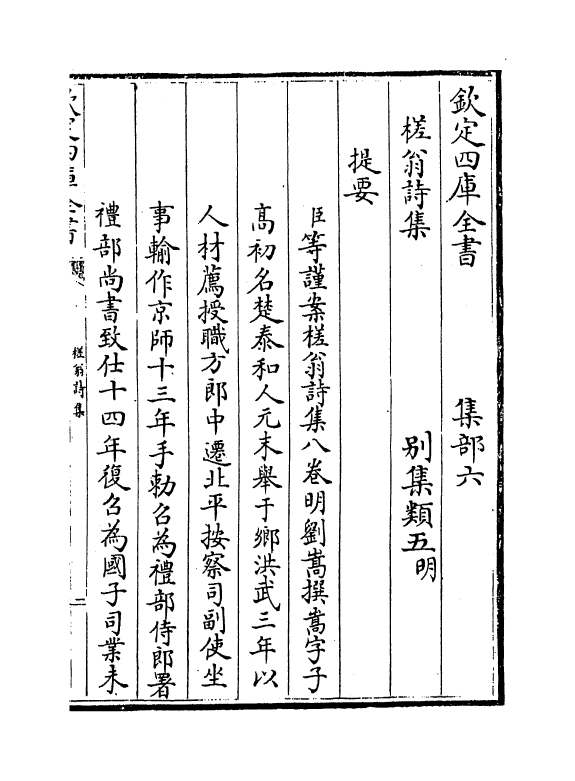 欽定四庫全書　集部六
槎翁詩集　别集類五明
提要
臣等謹案槎翁詩集八卷明劉嵩撰嵩字子
髙初名楚泰和人元末舉于鄉洪武三年以
人材薦授職方郎中遷北平按察司副使坐
事輸作京師十三年手勅召為禮部侍郎署
禮部尚書致仕十四年復召為國子司業未
欽定四庫全書
槎翁詩集